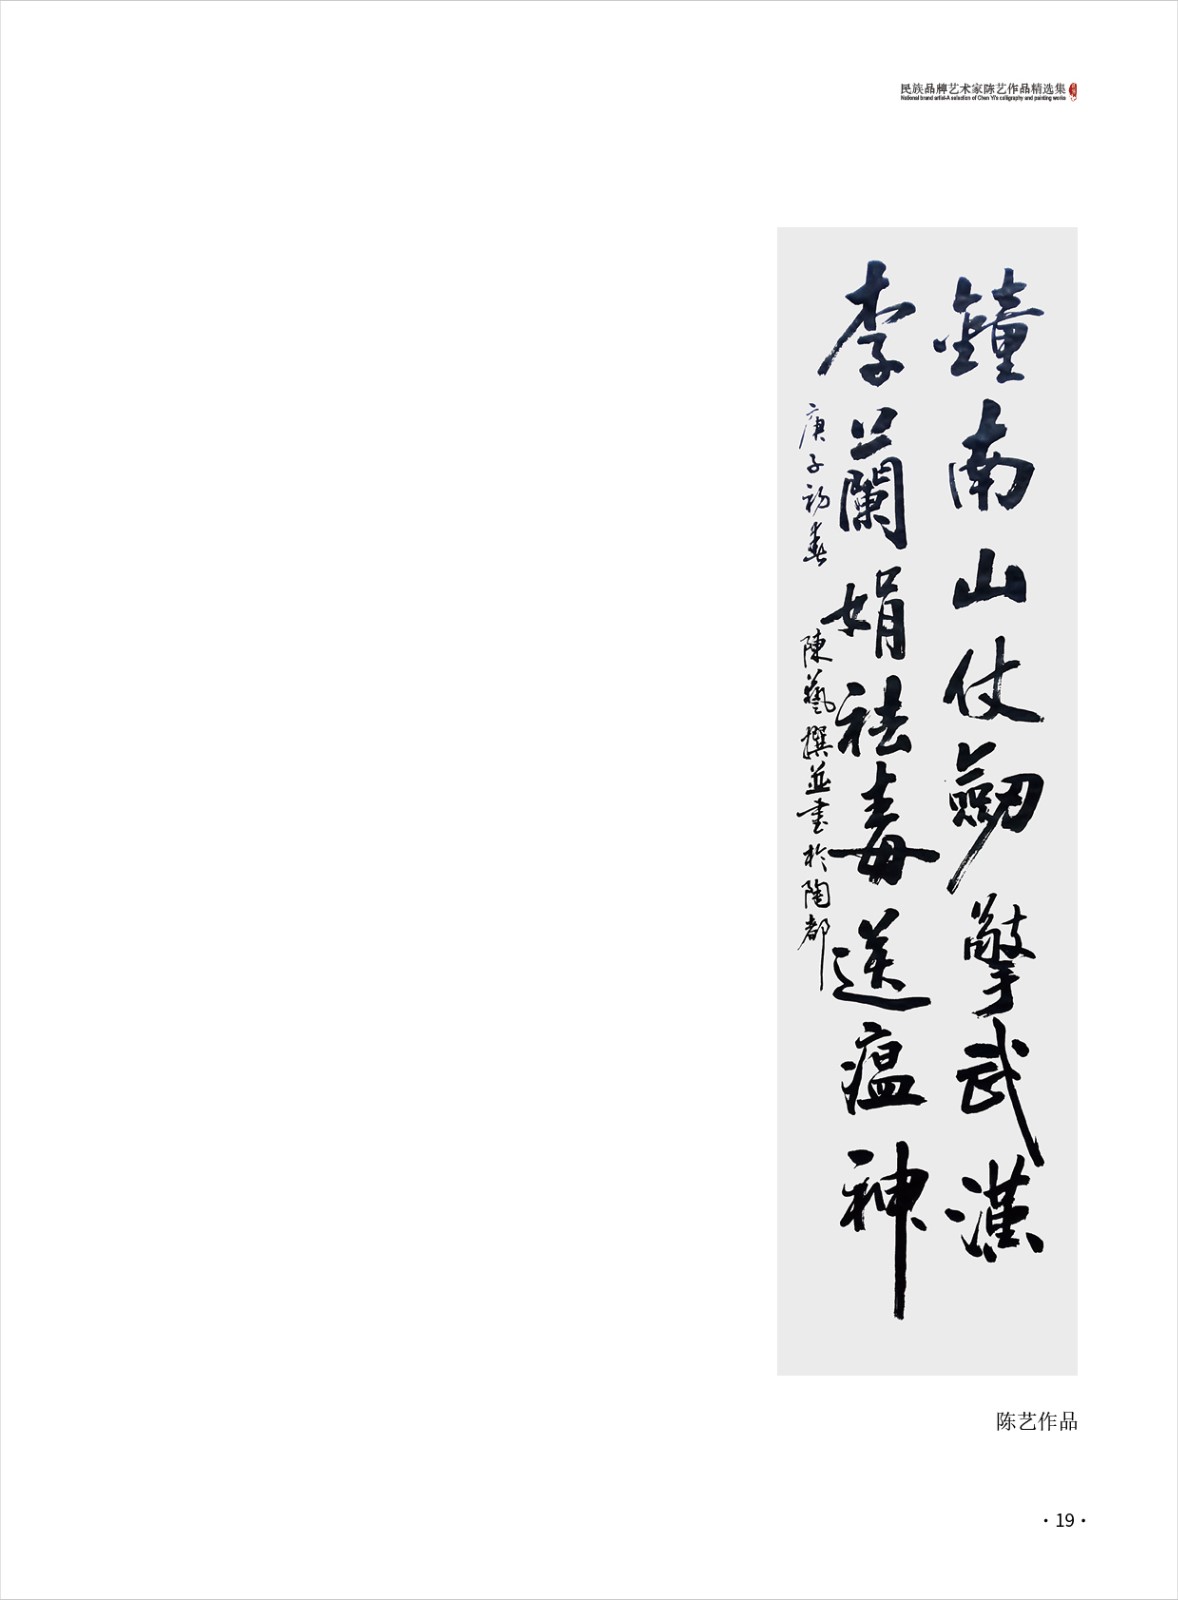 民族品牌艺术家陈艺作品精选集
National brand artist-A selection of Chen Yi's calligraphy and painting works
鐘南山仗劒擎武漢
李蘭娟祛毒送瘟神
庚子初春 陳藝撰並書於陶都
陈艺作品
·19·